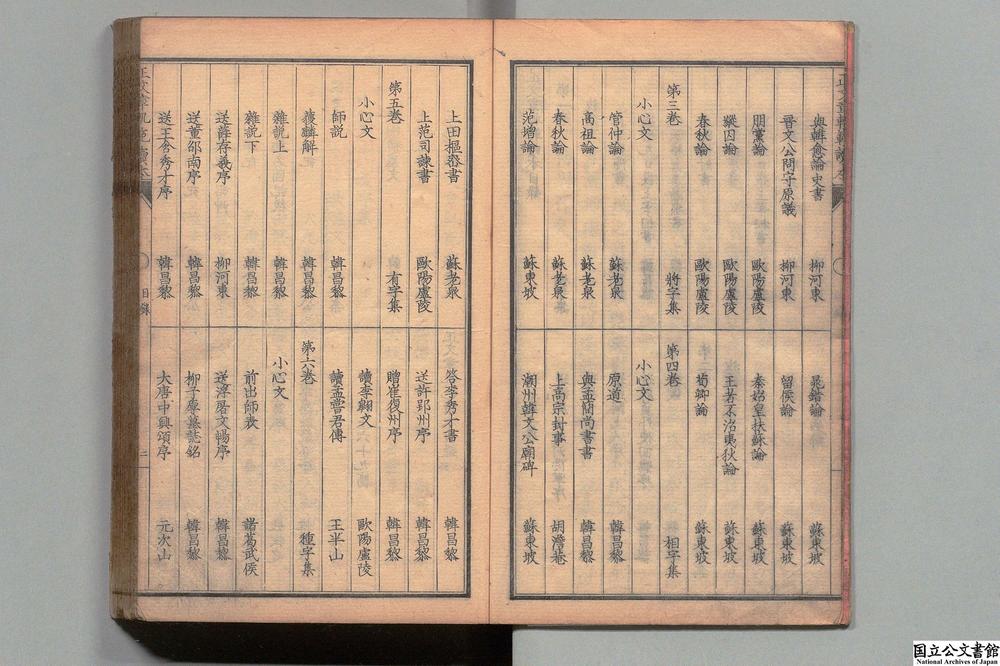 與韓愈論史書 柳河東
晉文公問守原議 柳河東
朋黨論 歐陽盧陵
縱囚論 歐陽盧陵
春秋論 歐陽盧陵
第三卷 將字集
小心文
管仲論 蘇老泉
高祖論 蘇老泉
春秋論 蘇老泉
范增論 蘇東坡
晁錯論 蘇東坡
留侯論 蘇東坡
秦始皇扶蘇論 蘇東坡
王者不治夷狄論 蘇東坡
荀卿論 蘇東坡
第四卷 相字集
小心文
原道 韓昌黎
與孟簡尚書書 韓昌黎
上高宗封事 胡澹菴
潮州韓文公廟碑 蘇東坡
上田樞密書 蘇老泉
上范司諫書 歐陽盧陵
第五卷 有字集
小心文
師説 韓昌黎
獲麟解 韓昌黎
雜説上 韓昌黎
雜説下 韓昌黎
送薛存義序 柳河東
送董邵南序 韓昌黎
送王含秀才序 韓昌黎
答李秀才書 韓昌黎
送許郢州序 韓昌黎
贈崔復州序 韓昌黎
讀李翺文 歐陽盧陵
讀孟嘗君傳 王半山
第六卷 種字集
小心文
前出師表 諸葛武侯
送浮屠文暢序 韓昌黎
柳子厚墓誌銘 韓昌黎
大唐中興頌序 元次山
目錄 二
国立公文書館
National Archives of Japan